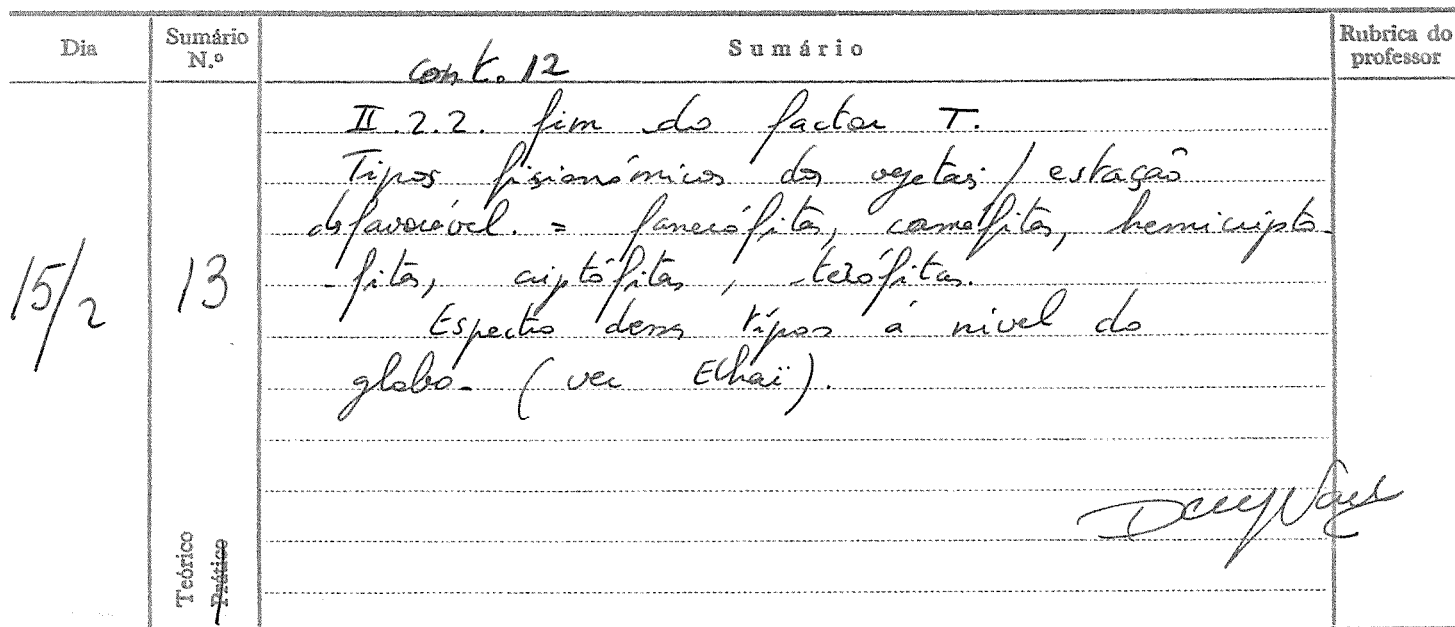 Dia Sumário N.º Sumário Rubrica do professor
cont. 12
II.2.2. fim do factor T.
Tipos fisionómicos dos vegetais / estação
desfavorável. = fanerófitas, camefitas, hemicripto
-fitas, criptófitas, terófitas.
15/2 13
Espectro desses tipos a nível do
globo. (ver Elhaï).
Teórico
Prático